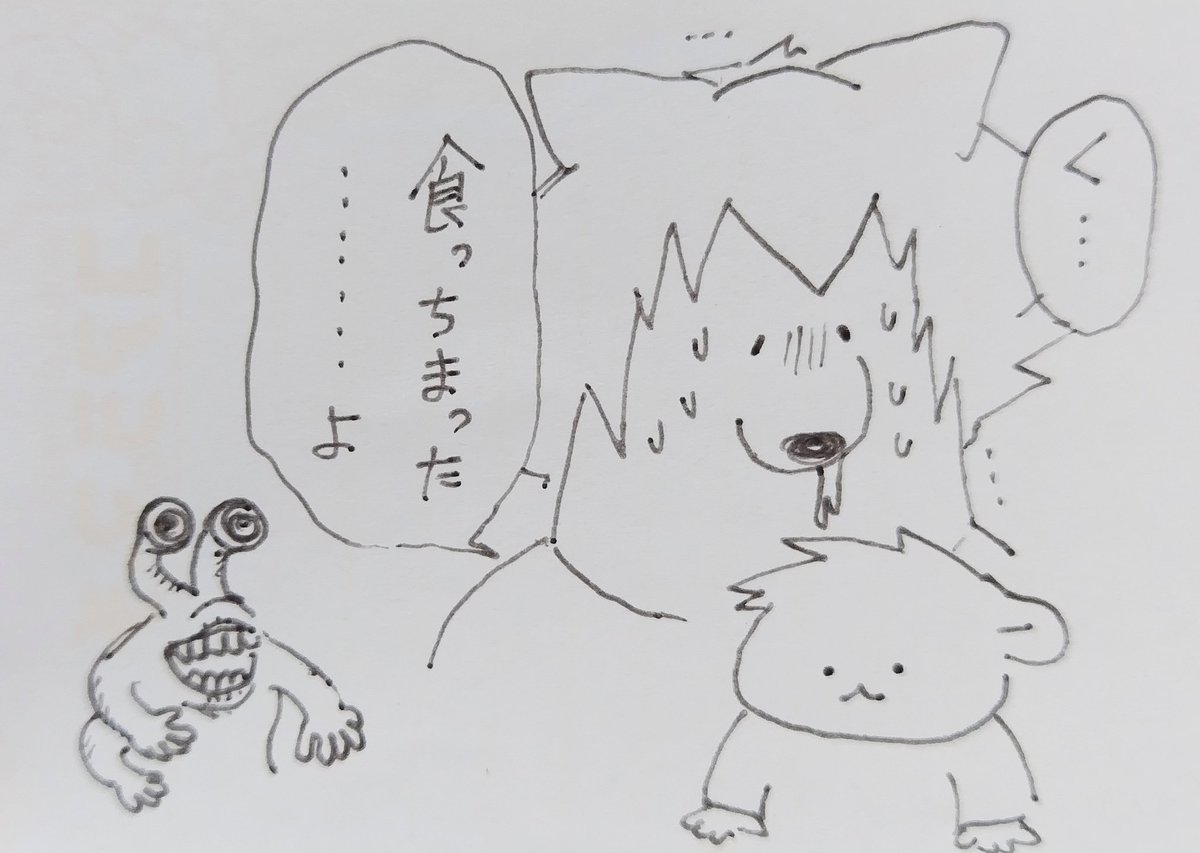 く…
食っちまった
………よ